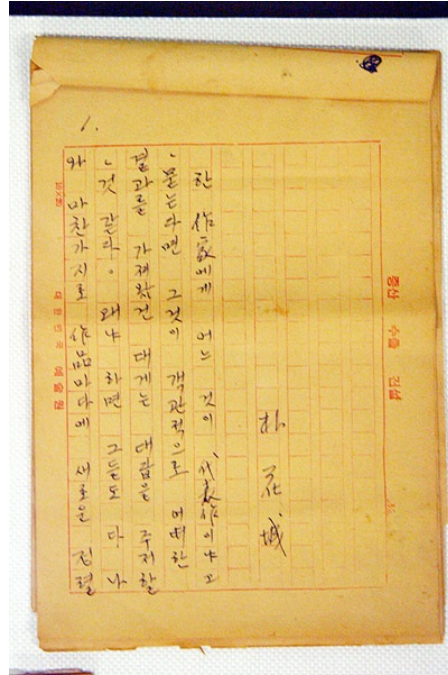 증산 수출 건설
朴 花 城
한 作家에게 어느 것이 代表作이냐고
묻는다면 그것이 객관적으로 어떠한
결과를 가져왔건 대게는 대답을 주저할
것 같다. 왜냐 하면 그들도 다 나
와 마찬가지로 作品마다에 새로운 정렬
대한민국 예술원
1.